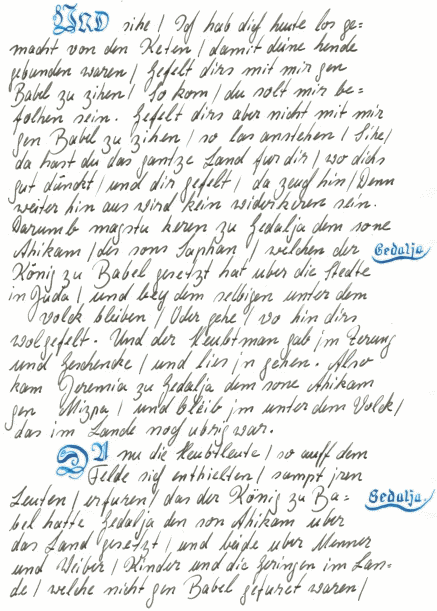 UND sihe / Ich hab dich heute los ge=
macht von den Keten / damit deine hende
gebunden waren / Gefelt dirs mit mir gen
Babel zu zihen / So kom / du solt mir be=
folhen sein. Gefelt dirs aber nicht mit mir
gen Babel zu zihen / so las anstehen / Sihe /
da hast du das gantze Land fur dir / wo dichs
gut dünckt / und dir gefelt / da zeuch hin / Denn
weiter hin aus wird kein widerkeren sein.
Darumb magstu keren zu Gedalja dem sone
Ahikam / des sons Saphan / welchen der
Gedalja.
König zu Babel gesetzt hat uber die Stedte
in Juda / und bey dem selbigen unter dem
Volck bleiben / Oder gehe / wo hin dirs
wolgefelt. Und der Heubtman gab jm Zerung
und Geschencke / und lies jn gehen. Also
kam Jeremia zu Gedalja dem sone Ahikam
gen Mizpa / und bleib jm unter dem Volck /
das im Lande noch ubrig war.
DA nu die Heubtleute / so auff dem
Felde sich enthielten / sampt jren
Leuten / erfuren / das der König zu Ba=
Gedalja.
bel hatte Gedalja den son Ahikam uber
das Land gesetzt / und beide uber Menner
und Weiber / Kinder und die Geringen im Lan=
de / welche nicht gen Babel gefuret waren /